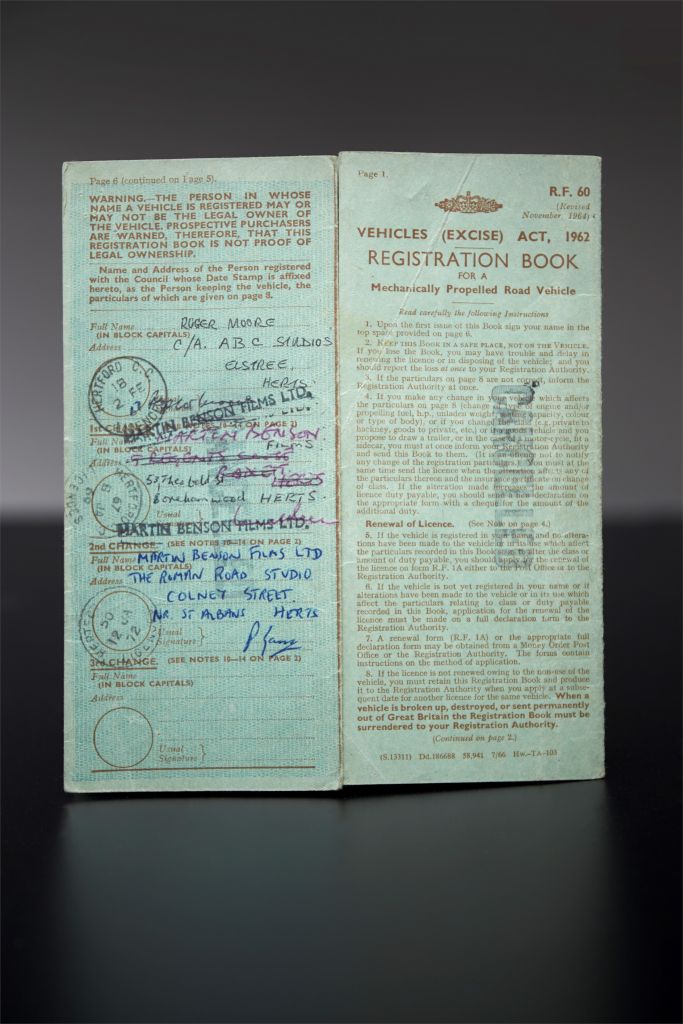 Page 6 (continued on Page 5).
WARNING.—THE PERSON IN WHOSE
NAME A VEHICLE IS REGISTERED MAY OR
MAY NOT BE THE LEGAL OWNER OF
THE VEHICLE. PROSPECTIVE PURCHASERS
ARE WARNED, THEREFORE, THAT THIS
REGISTRATION BOOK IS NOT PROOF OF
LEGAL OWNERSHIP.
Name and Address of the Person registered
with the Council whose Date Stamp is affixed
hereto, as the Person keeping the vehicle, the
particulars of which are given on page 8.
Full Name ROGER MOORE
(IN BLOCK CAPITALS)
Address C/A. ABC STUDIOS
ELSTREE,
HERTS.
HERTFORD C.C.
18 FE
MARTIN BENSON FILMS LTD.
1st CHANGE
Full Name MARTIN BENSON
FILMS
(IN BLOCK CAPITALS)
Address
Borehamwood HERTS.
Usual
MARTIN BENSON FILMS LTD.
2nd CHANGE.— (SEE NOTES 10—14 ON PAGE 2)
Full Name MARTIN BENSON FILMS LTD
(IN BLOCK CAPITALS)
Address THE ROMAN ROAD STUDIO
COLNEY STREET.
NR. ST ALBANS HERTS
Usual
Signature
3rd CHANGE. (SEE NOTES 10—14 ON PAGE 2)
Full Name
(IN BLOCK CAPITALS)
Address
Usual
Signature
Page 1.
R.F. 60
(Revised
November 1964)
VEHICLES (EXCISE) ACT, 1962
REGISTRATION BOOK
FOR A
Mechanically Propelled Road Vehicle
Read carefully the following Instructions
1. Upon the first issue of this Book sign your name in the
top space provided on page 6.
2. KEEP THIS BOOK IN A SAFE PLACE, NOT ON THE VEHICLE.
If you lose the Book, you may have trouble and delay in
renewing the licence or in disposing of the vehicle; and you
should report the loss at once to your Registration Authority.
3. If the particulars on page 8 are not correct, inform the
Registration Authority at once.
4. If you make any change in the vehicle which affects the
particulars on page 8 (change of type of engine and/or
propelling fuel, h.p., unladen weight, capacity, colour
or type of body) or if you change the (e.g. private to
hackney, goods to private, etc.) or if vehicle and you
propose to draw a trailer, or in the case motor-cycle, fit a
sidecar, you must at once inform your Registration Authority
and send this Book to them. (It is not to notify
any change of the registration particulars You must at the
same time send the licence when the alteration affects any of
the particulars thereon and the insurance on change
of class. If the alteration made increase the amount of
licence duty payable, you should declaration on
the appropriate form with a cheque the amount of the
additional duty.
Renewal of Licence. (See Note on page 4.)
5. If the vehicle is registered in your name and no altera-
tions have been made to the vehicle or in its use which affect
the particulars recorded in this Book or alter the class or
amount of duty payable, you should apply for the renewal of
the licence on form R.F. 1A either to the Post Office or to the
Registration Authority.
6. If the vehicle is not yet registered in your name or if
alterations have been made to the vehicle or in its use which
affect the particulars relating to class or duty payable
recorded in this Book, application for the renewal of the
licence must be made on a full declaration form to the
Registration Authority.
7. A renewal form (R.F. 1A) or the appropriate full
declaration form may be obtained from a Money Order Post
Office or the Registration Authority. The forms contain
instructions on the method of application.
8. If the licence is not renewed owing to the non-use of the
vehicle, you must retain this Registration Book and produce
it to the Registration Authority when you apply at a subse-
quent date for another licence for the same vehicle. When a
vehicle is broken up, destroyed, or sent permanently
out of Great Britain the Registration Book must be
surrendered to your Registration Authority.
(Continued on page 2.)
(S.13311) Dd.186688 58,941 7/66 Hw.–TA–103
CANCELLED